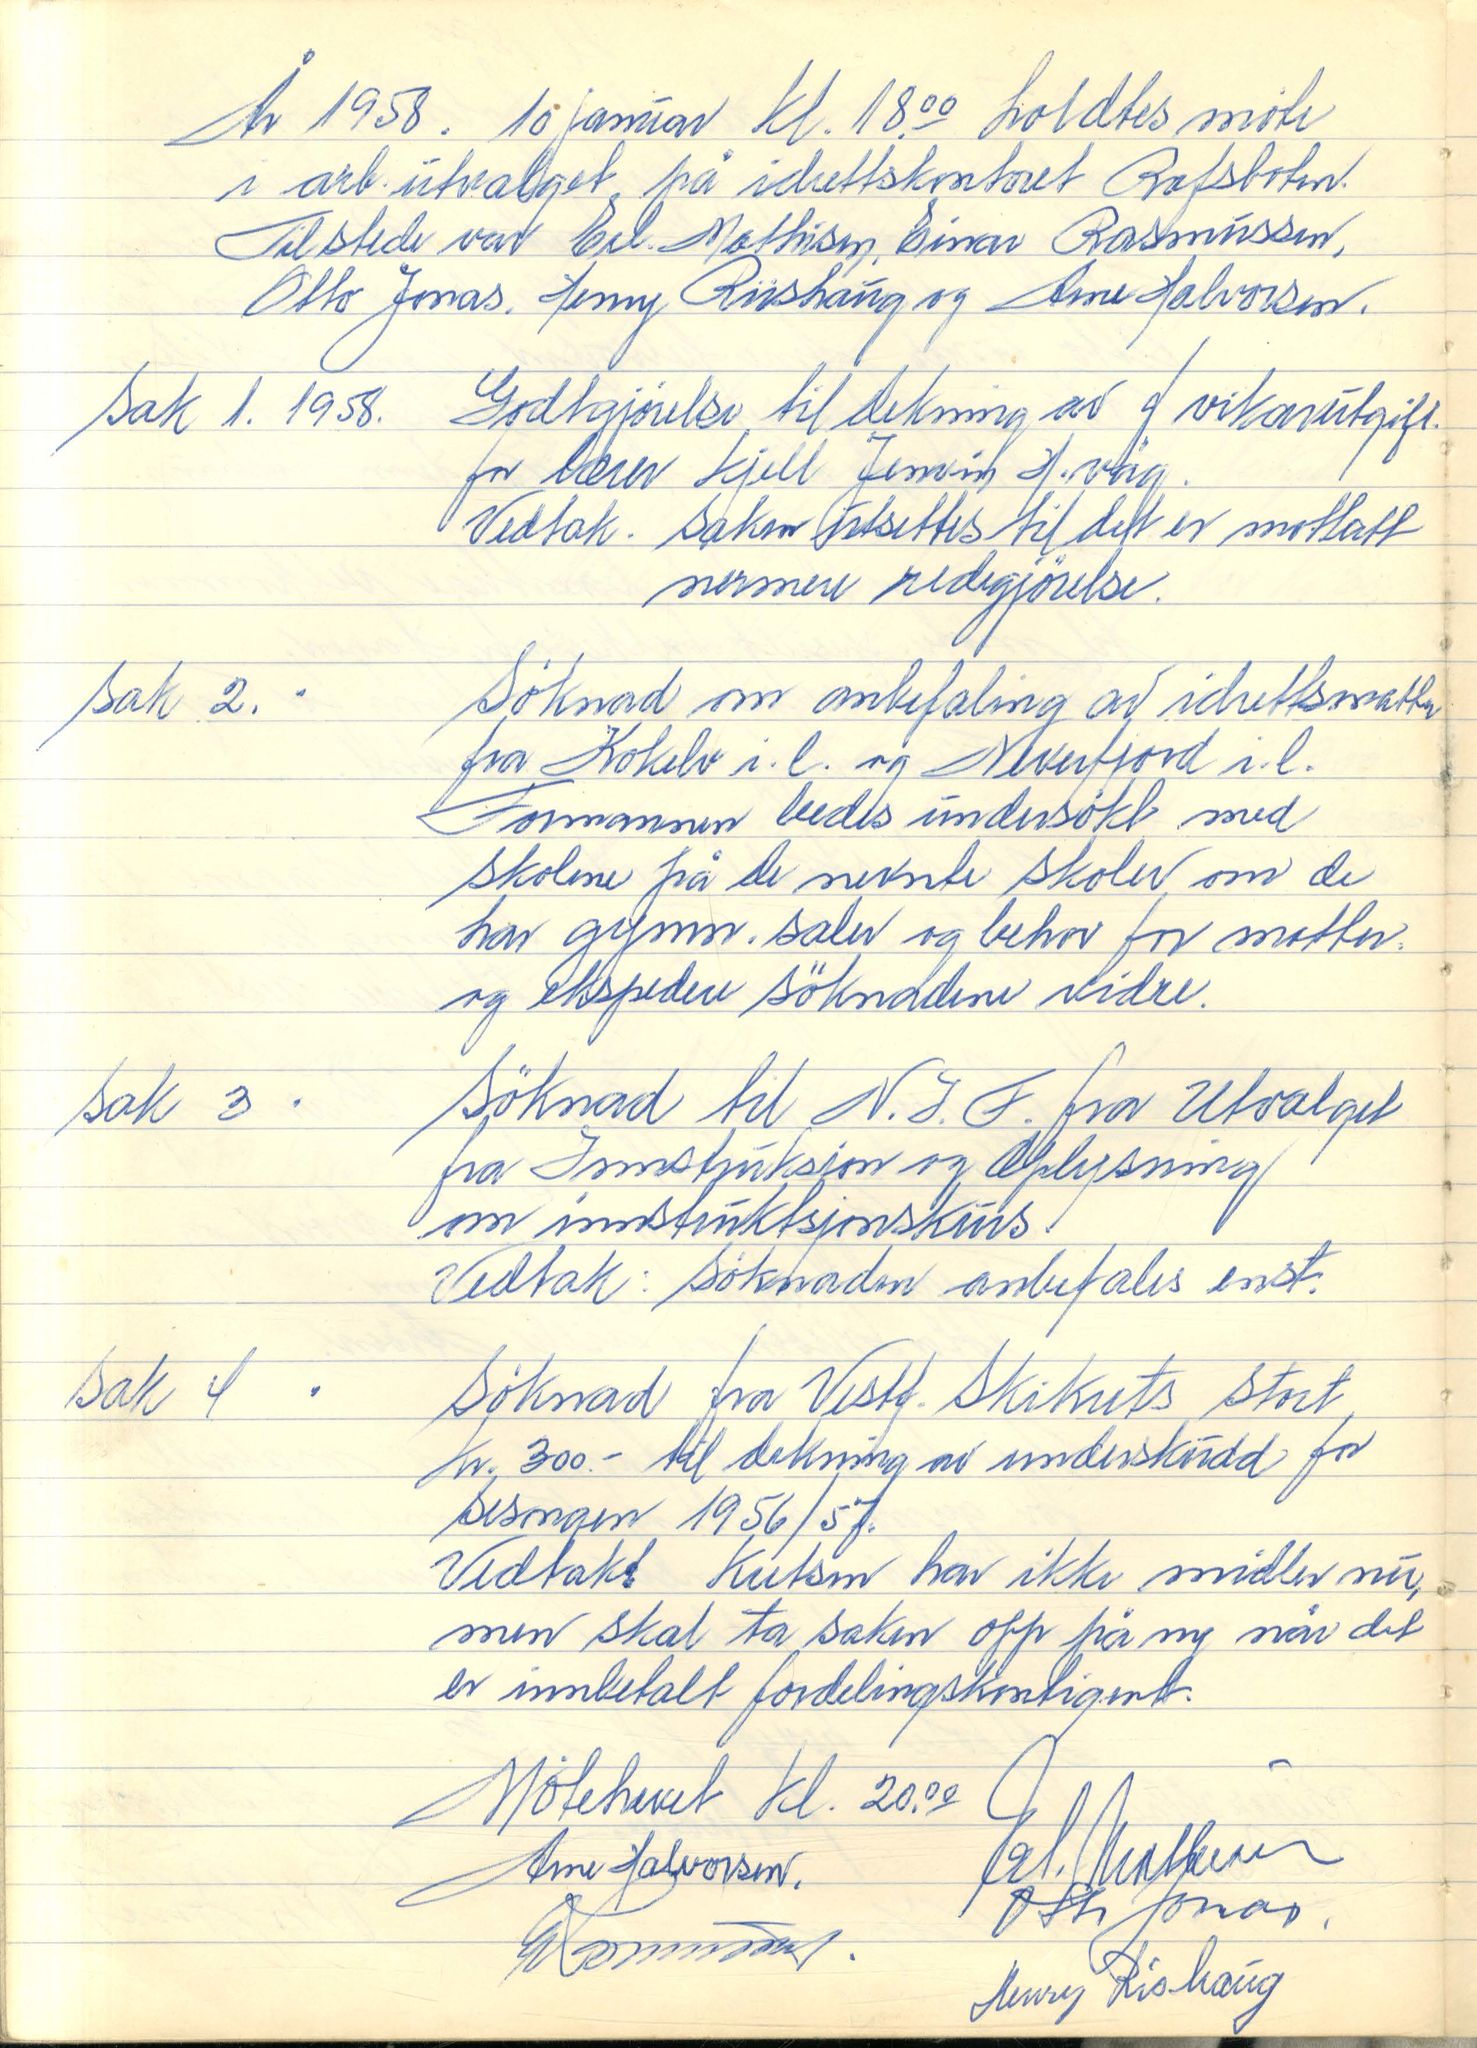 År 1958. 10 januar kl. 18.00 holdtes möte
i arb. utvalget, på idrettskontoret Rafsbotn.
Tilstede var Erl. Mathisen, Einar Rasmussen,
Otto Jonas, Henry Riishaug og Arne Halvorsen.
Sak 1. 1958. Godtgjörelse til dekning av vikarutgift.
for lærer Kjell H.våg.
Vedtak. Saken utsettes til det er mottatt
nermere redegjörelse.
Sak 2. " Söknad om anbefaling av idrettsmatter
fra Kokelv i.l. og Neverfjord i.l.
Formannen bedes undersökt med
skolene på de nevnte skoler om de
har gymn. saler og behov for matter.
og ekspedere söknadene vidre.
Sak 3 " Söknad til N.I.F. fra Utvalget
fra Innstruksjon og Oplysning
om innstruktsjonskurs.
Vedtak: Söknaden anbefales enst.
Sak 4 " Söknad fra Vestf. Skikrets stort
kr. 300.- til dekning av underskudd for
sesongen 1956/57.
Vedtak: Kretsen har ikke midler nu,
men skal ta saken opp på ny når det
er innbetalt fordelingskontigent.
Mötehevet kl. 20.00
Arne Halvorsen. Erl. Mathisen
Otto Jonas.
Henry Rishaug